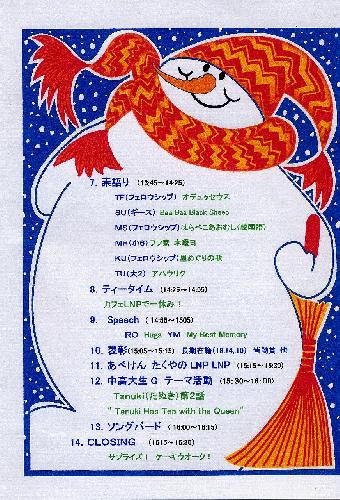 7. 素語り (13:45～14:25)
TF(フェロウシップ) オデュッセウス
SU(ギース) Baa Baa Black Sheep
MS(フェロウシップ)はらぺこあおむし(韓国語)
MH(小6)フレ家 木曜日
KU(フェロウシップ)星めぐりの歌
TU(大2) アハウリク
8. ティータイム (14:25～14:55)
カフェLNPで一休み!
9. Speech (14:55～15:05)
RO Hugs YM My Best Memory
10. 表彰(15:05～15:15) 長期在籍(18,14,10) 皆勤賞 他
11. あべけん たくやの LNP LNP (15:15～15:20)
12. 中高大生 G テーマ活動 (15:30～16:00)
Tanuki(たぬき)第2話
"Tanuki Has Tea with the Queen"
13. ソングバード (16:00～16:15)
14. CLOSING (16:15～16:20)
サプライズ! ケーキウオーク!